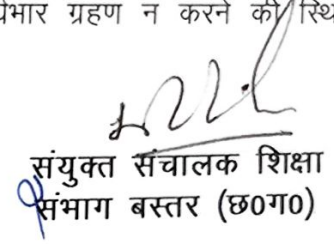 भार ग्रहण न करने की
संयुक्त संचालक शिक्षा
संभाग बस्तर (छ0ग0)